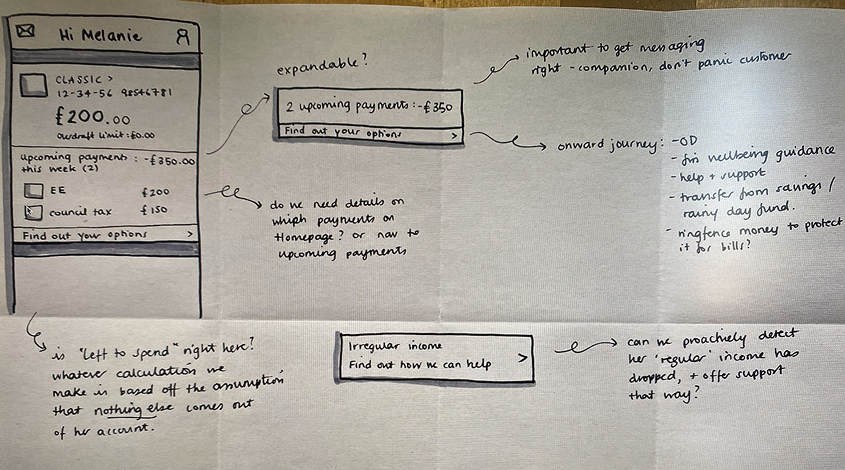 Hi Melanie
CLASSIC >
12-34-56 98546781
£200.00
Overdraft limit: £0.00
upcoming payments : -£350.00
this week (2)
EE £200
council tax £150
Find out your options >
expandable?
2 upcoming payments : -£350
Find out your options >
important to get messaging
right - companion, don't panic customer
onward journey: - OD
- fin wellbeing guidance
- help + support
- transfer from savings /
rainy day fund.
- ringfence money to protect
it for bills?
do we need details on
which payments on
Homepage? or nav to
upcoming payments
is "left to spend" right here?
whatever calculation we
make is based off the assumption
that nothing else comes out
of her account.
Irregular income
Find out how we can help >
can we proactively detect
her 'regular' income has
dropped, + offer support
that way?